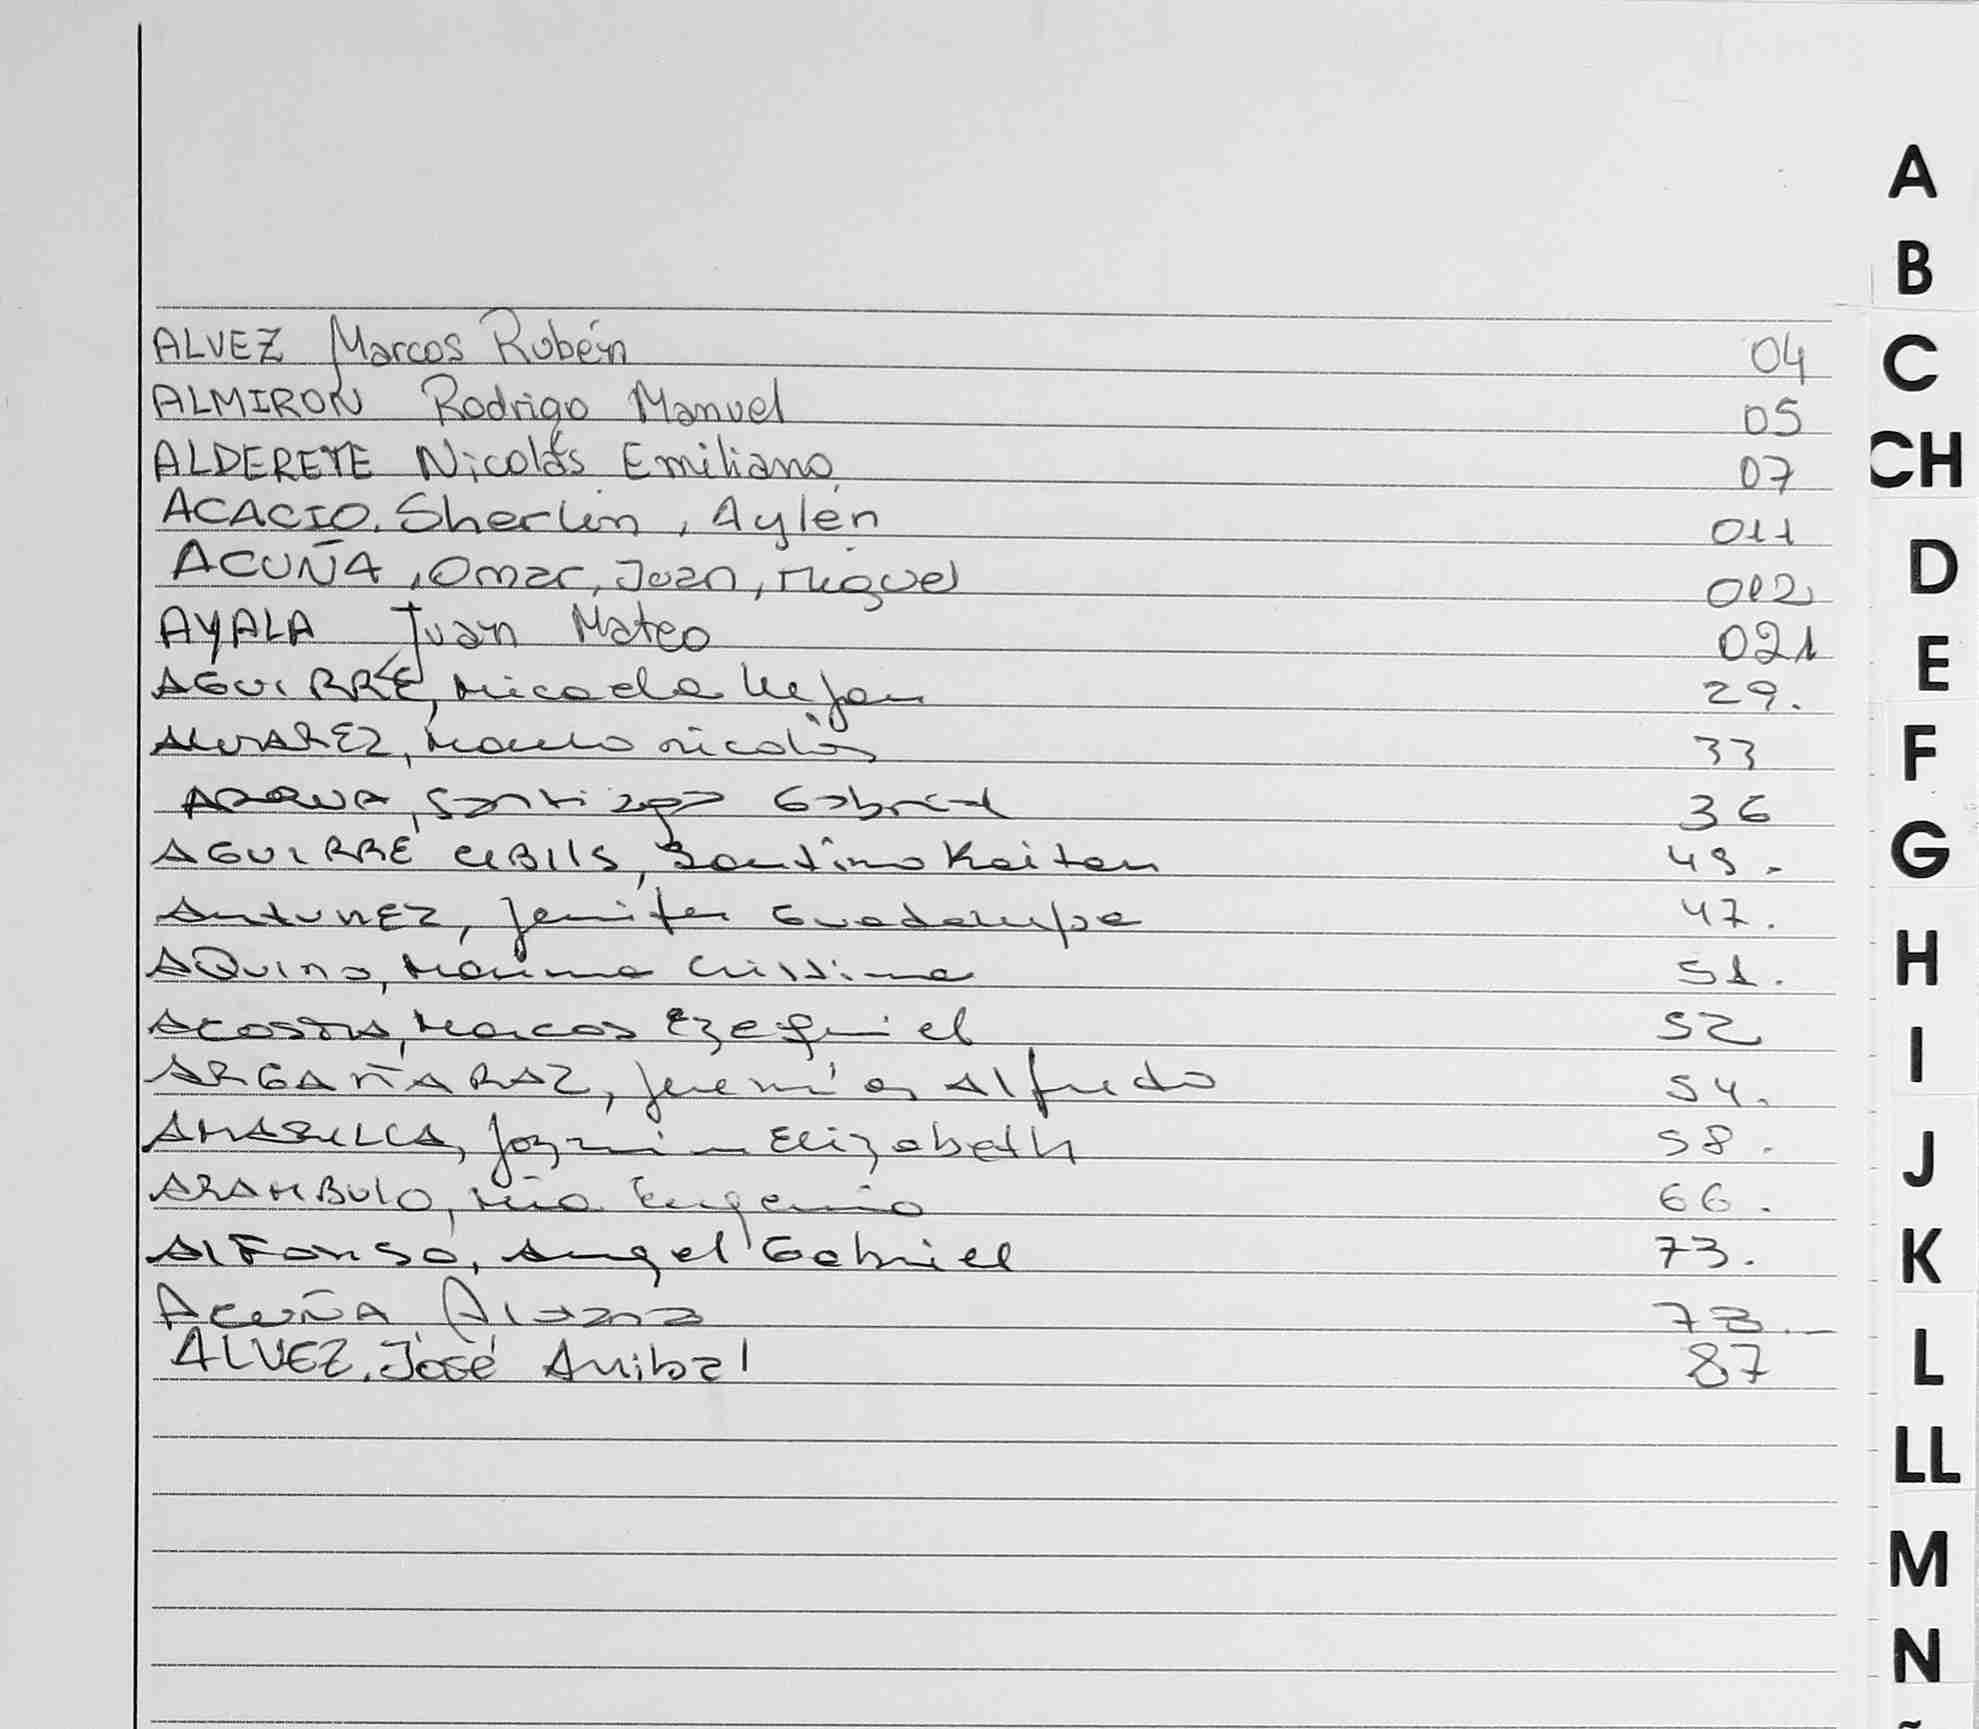 ALVEZ Marcos Rubén 04
ALMIRON Rodrigo Manuel 05
ALDERETE Nicolás Emiliano 07
ACACIO, Sherlin, Aylén 011
ACUÑA, Omar, Juan, Miguel 012
AYALA Juan Mateo 021
AGUIRRE, Micaela 29.
ALVAREZ, Nicolás 33
Santiago Gabriel 36
AGUIRRE CIBILS, Santino Kaitan 49.
Antunez, Jenifer Guadalupe 47.
AQuino, 51.
Acosta, Marcos Ezequiel 52
ARGAÑARAZ, Jeremías Alfredo 54.
AMARILLA, Jazmin Elizabeth 58.
ARAMBULO, Mía Eugenia 66.
Alfonso, Angel Gabriel 73.
Acuña 73.
ALVEZ, José Anibal 87
A
B
C
CH
D
E
F
G
H
I
J
K
L
LL
M
N